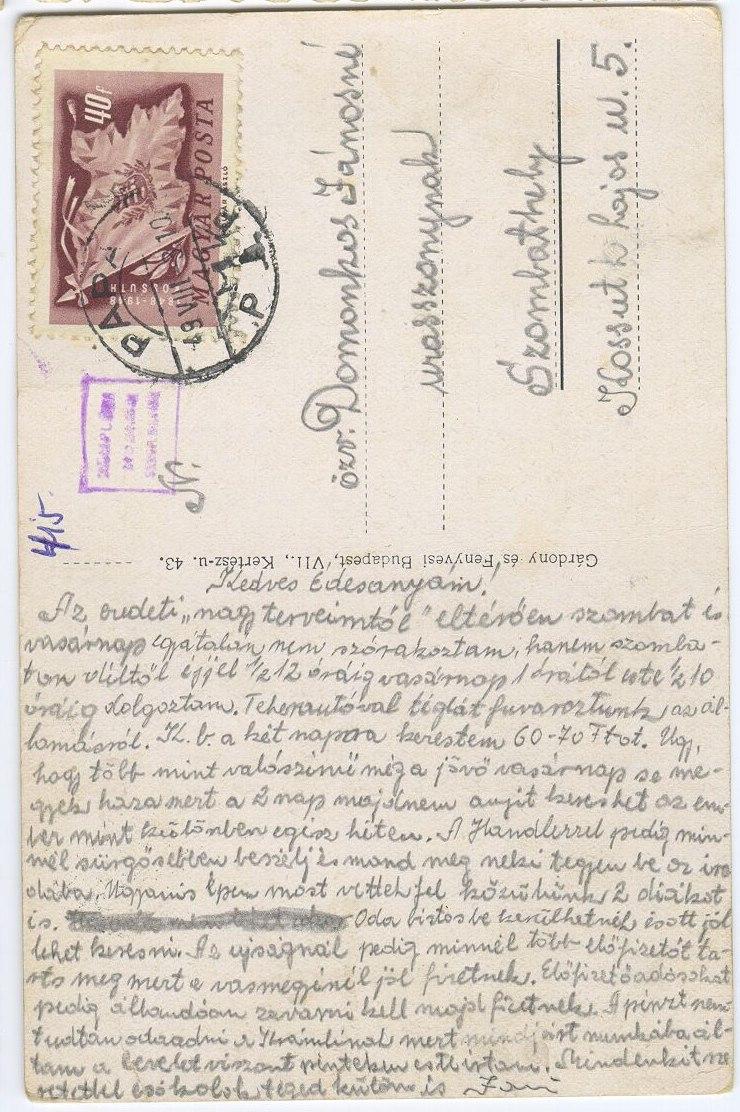 40f
MAGYAR POSTA
1848-1948
KOSSUTH
PÁPA
49 VII
10
P
N.
özv. Domonkos Jánosné
urasszonynak
Szombathely
Kossuth Lajos u. 5.
415.
Gárdony és Fenyvesi Budapest, VII., Kertész-u. 43.
Kedves Édesanyám!
Az eredeti „nagy terveimtől" eltérően szombat és
vasárnap egyátalán nem szórakoztam, hanem szomba-
ton déltől éjjel 1/2 12 óráig vasárnap 1 órától este 1/2 10
óráig dolgoztam. Teherautóval téglát fuvaroztunk az ál-
lomásról. K. b. a két napra kerestem 60-70 Ft-ot. Úgy,
hogy több mint valószínű még a jövő vasárnap se me-
gyek haza mert a 2 nap majdnem annyit kereshet az em-
ber mint különben egész héten. A Handlerrel pedig min-
nél sürgősebben beszélj és mond meg neki tegyen be az iro
dába. Ugyanis épen most vettek fel közülünk 2 diákot
is. Oda biztos be kerülhetnék és ott jól
lehet keresni. Az ujságnál pedig minnél több előfizetőt ta-
rts meg mert a vasmegyénél jól fizetnek. Előfizető adósokat
pedig állandóan zavarni kell majd fizetnek. A pénzt nem
tudtam odaadni a mert munkába ál-
tam a levelet viszont pénteken este irtam. Mindenkit sze
retettel csókolok téged külön is Jani